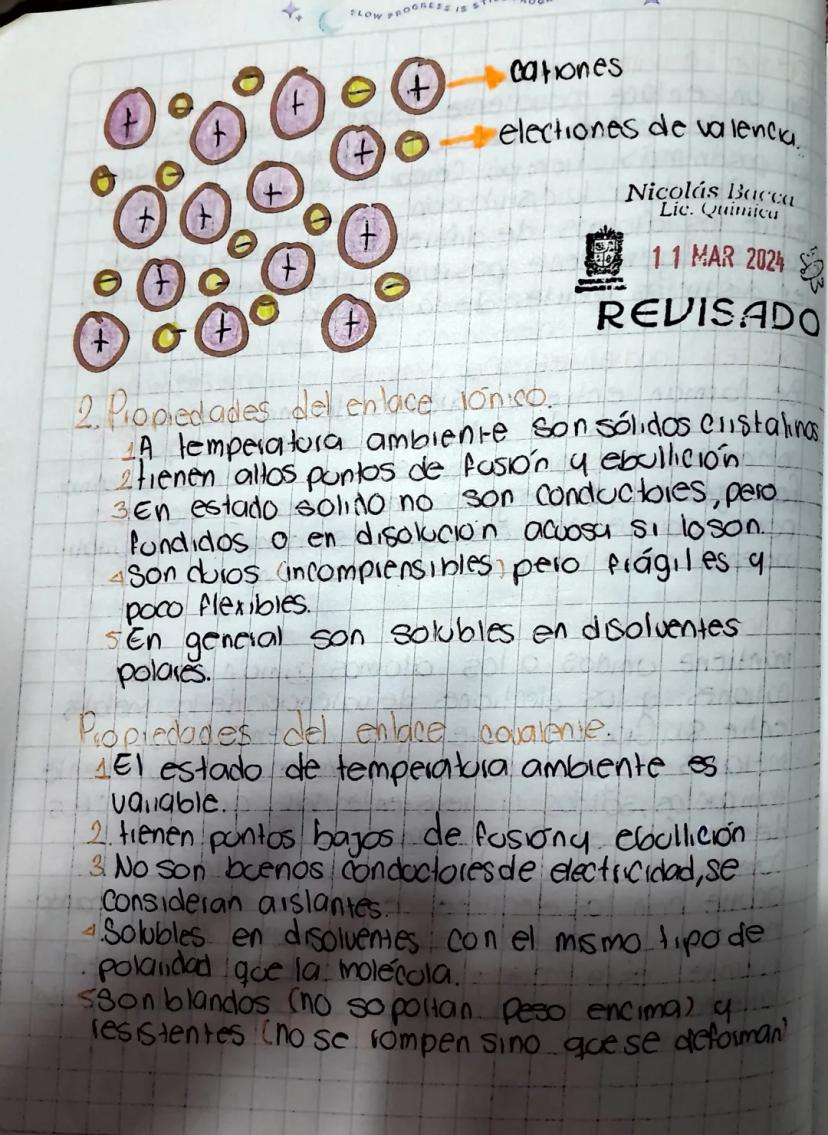 SLOW PROGRESS IS
cationes
electrones de valencia.
Nicolás Bacca
Lic. Química
11 MAR 2024
REVISADO
2. Propiedades del enlace iónico.
1 A temperatura ambiente son sólidos cristalinos
2 tienen altos puntos de fusión y ebullición
3 En estado solido no son conductores, pero
fundidos o en disolución acuosa si loson.
4 Son duros (incomprensibles) pero frágiles y
poco flexibles.
5 En general son solubles en disolventes
polares.
Propiedades del enlace covalente.
1 El estado de temperatura ambiente es
variable.
2. tienen puntos bajos de fusion y ebullición
3. No son buenos conductores de electricidad, se
consideran aislantes.
4. Solubles en disolventes con el mismo tipo de
polaridad que la molécula.
5 Son blandos (no soportan peso encima) y
resistentes (no se rompen sino que se deforman)